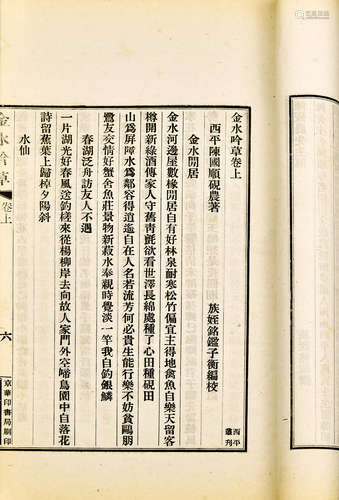 金水吟草卷上
西平陳國順硯農著
族姪銘鑑子衡編校
金水閒居
金水河邊屋數椽閒居自有好林泉耐寒松竹偏宜主得地禽魚自樂天留客
樽開新綠酒傳家人守舊靑氈欲看世澤長綿處種了心田種硯田
山爲屛障水爲鄰容得逍遙自在人名若流芳何必貴生能行樂不妨貧鷗朋
鷺友交情好蟹舍魚莊景物新菽水奉親時覺淡一竿我自釣銀鱗
春湖泛舟訪友人不遇
一片湖光好春風送釣槎來從楊柳岸去向故人家門外空啼鳥園中自落花
詩留蕉葉上歸棹夕陽斜
水仙
金水吟草
卷上
六
京華印書局刷印
西平
叢刊